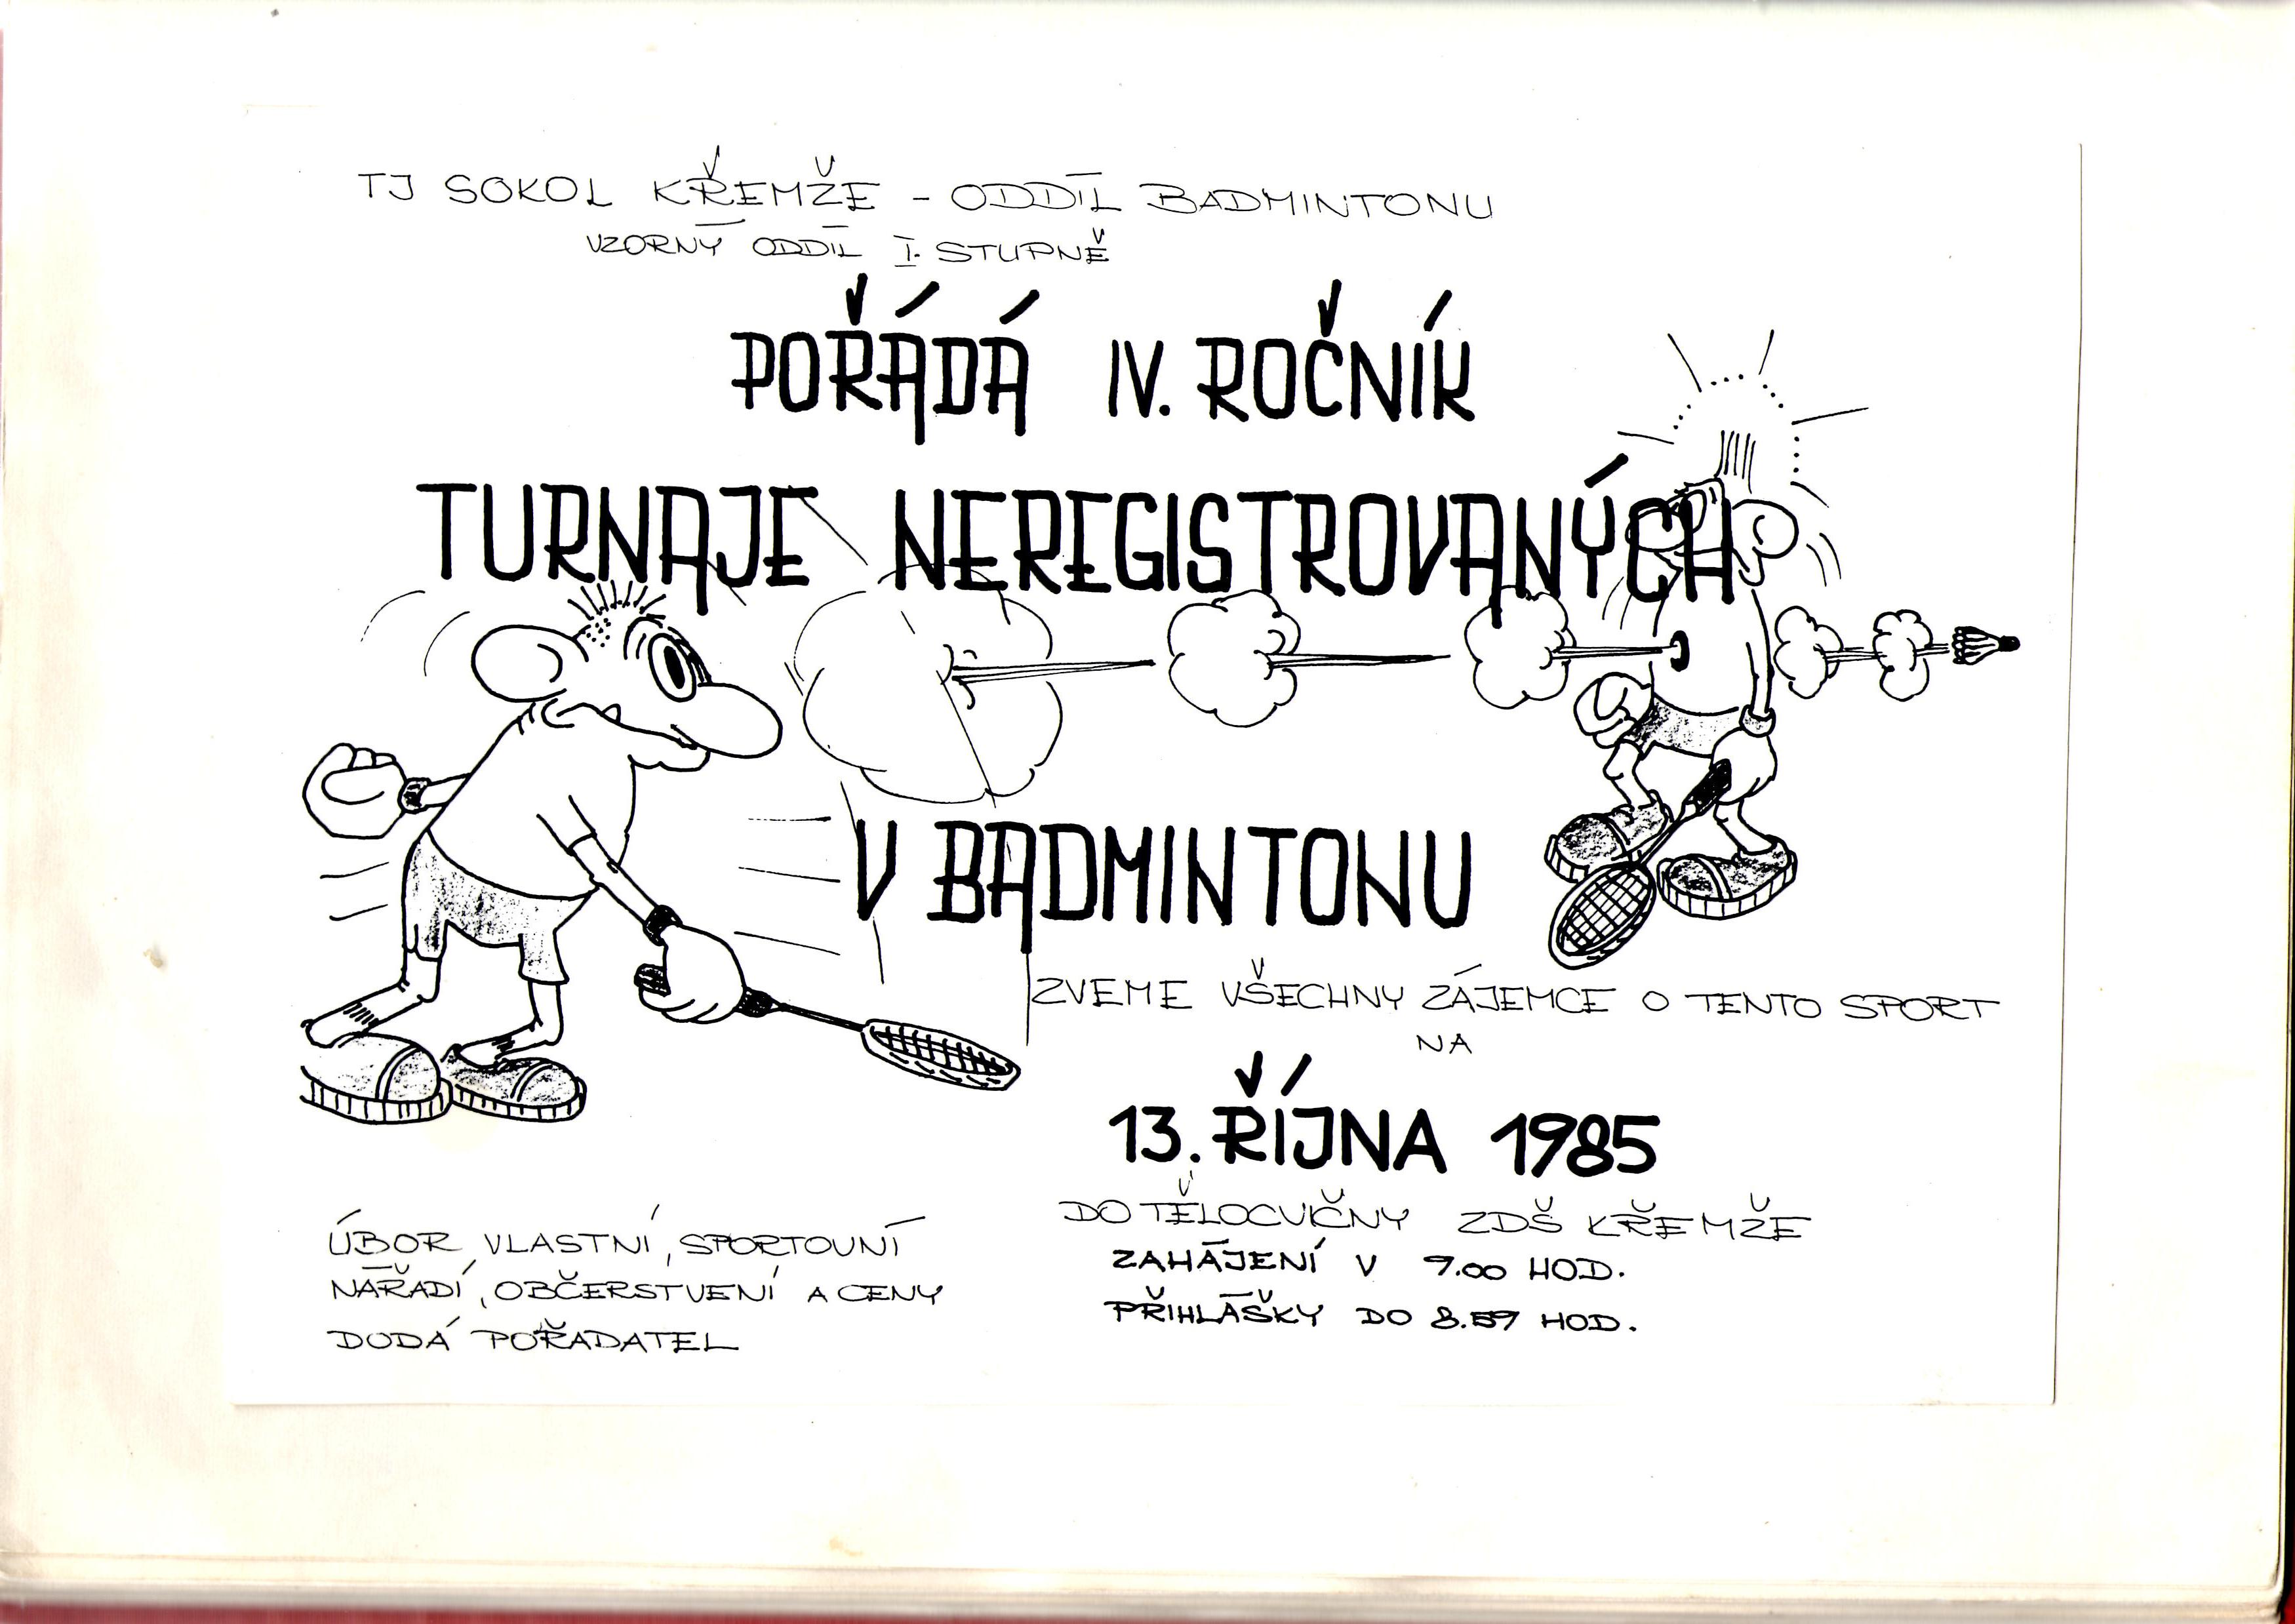 TJ SOKOL KŘEMŽE - ODDÍL BADMINTONU
VZORNÝ ODDÍL I. STUPNĚ
POŘÁDÁ IV. ROČNÍK
TURNAJE NEREGISTROVANÝCH
V BADMINTONU
ZVEME VŠECHNY ZÁJEMCE O TENTO SPORT
NA
13. ŘÍJNA 1985
DO TĚLOCVIČNY ZDŠ KŘEMŽE
ZAHÁJENÍ V 9.00 HOD.
PŘIHLÁŠKY DO 8.59 HOD.
ÚBOR VLASTNÍ, SPORTOVNÍ
NÁŘADÍ, OBČERSTVENÍ A CENY
DODÁ POŘADATEL